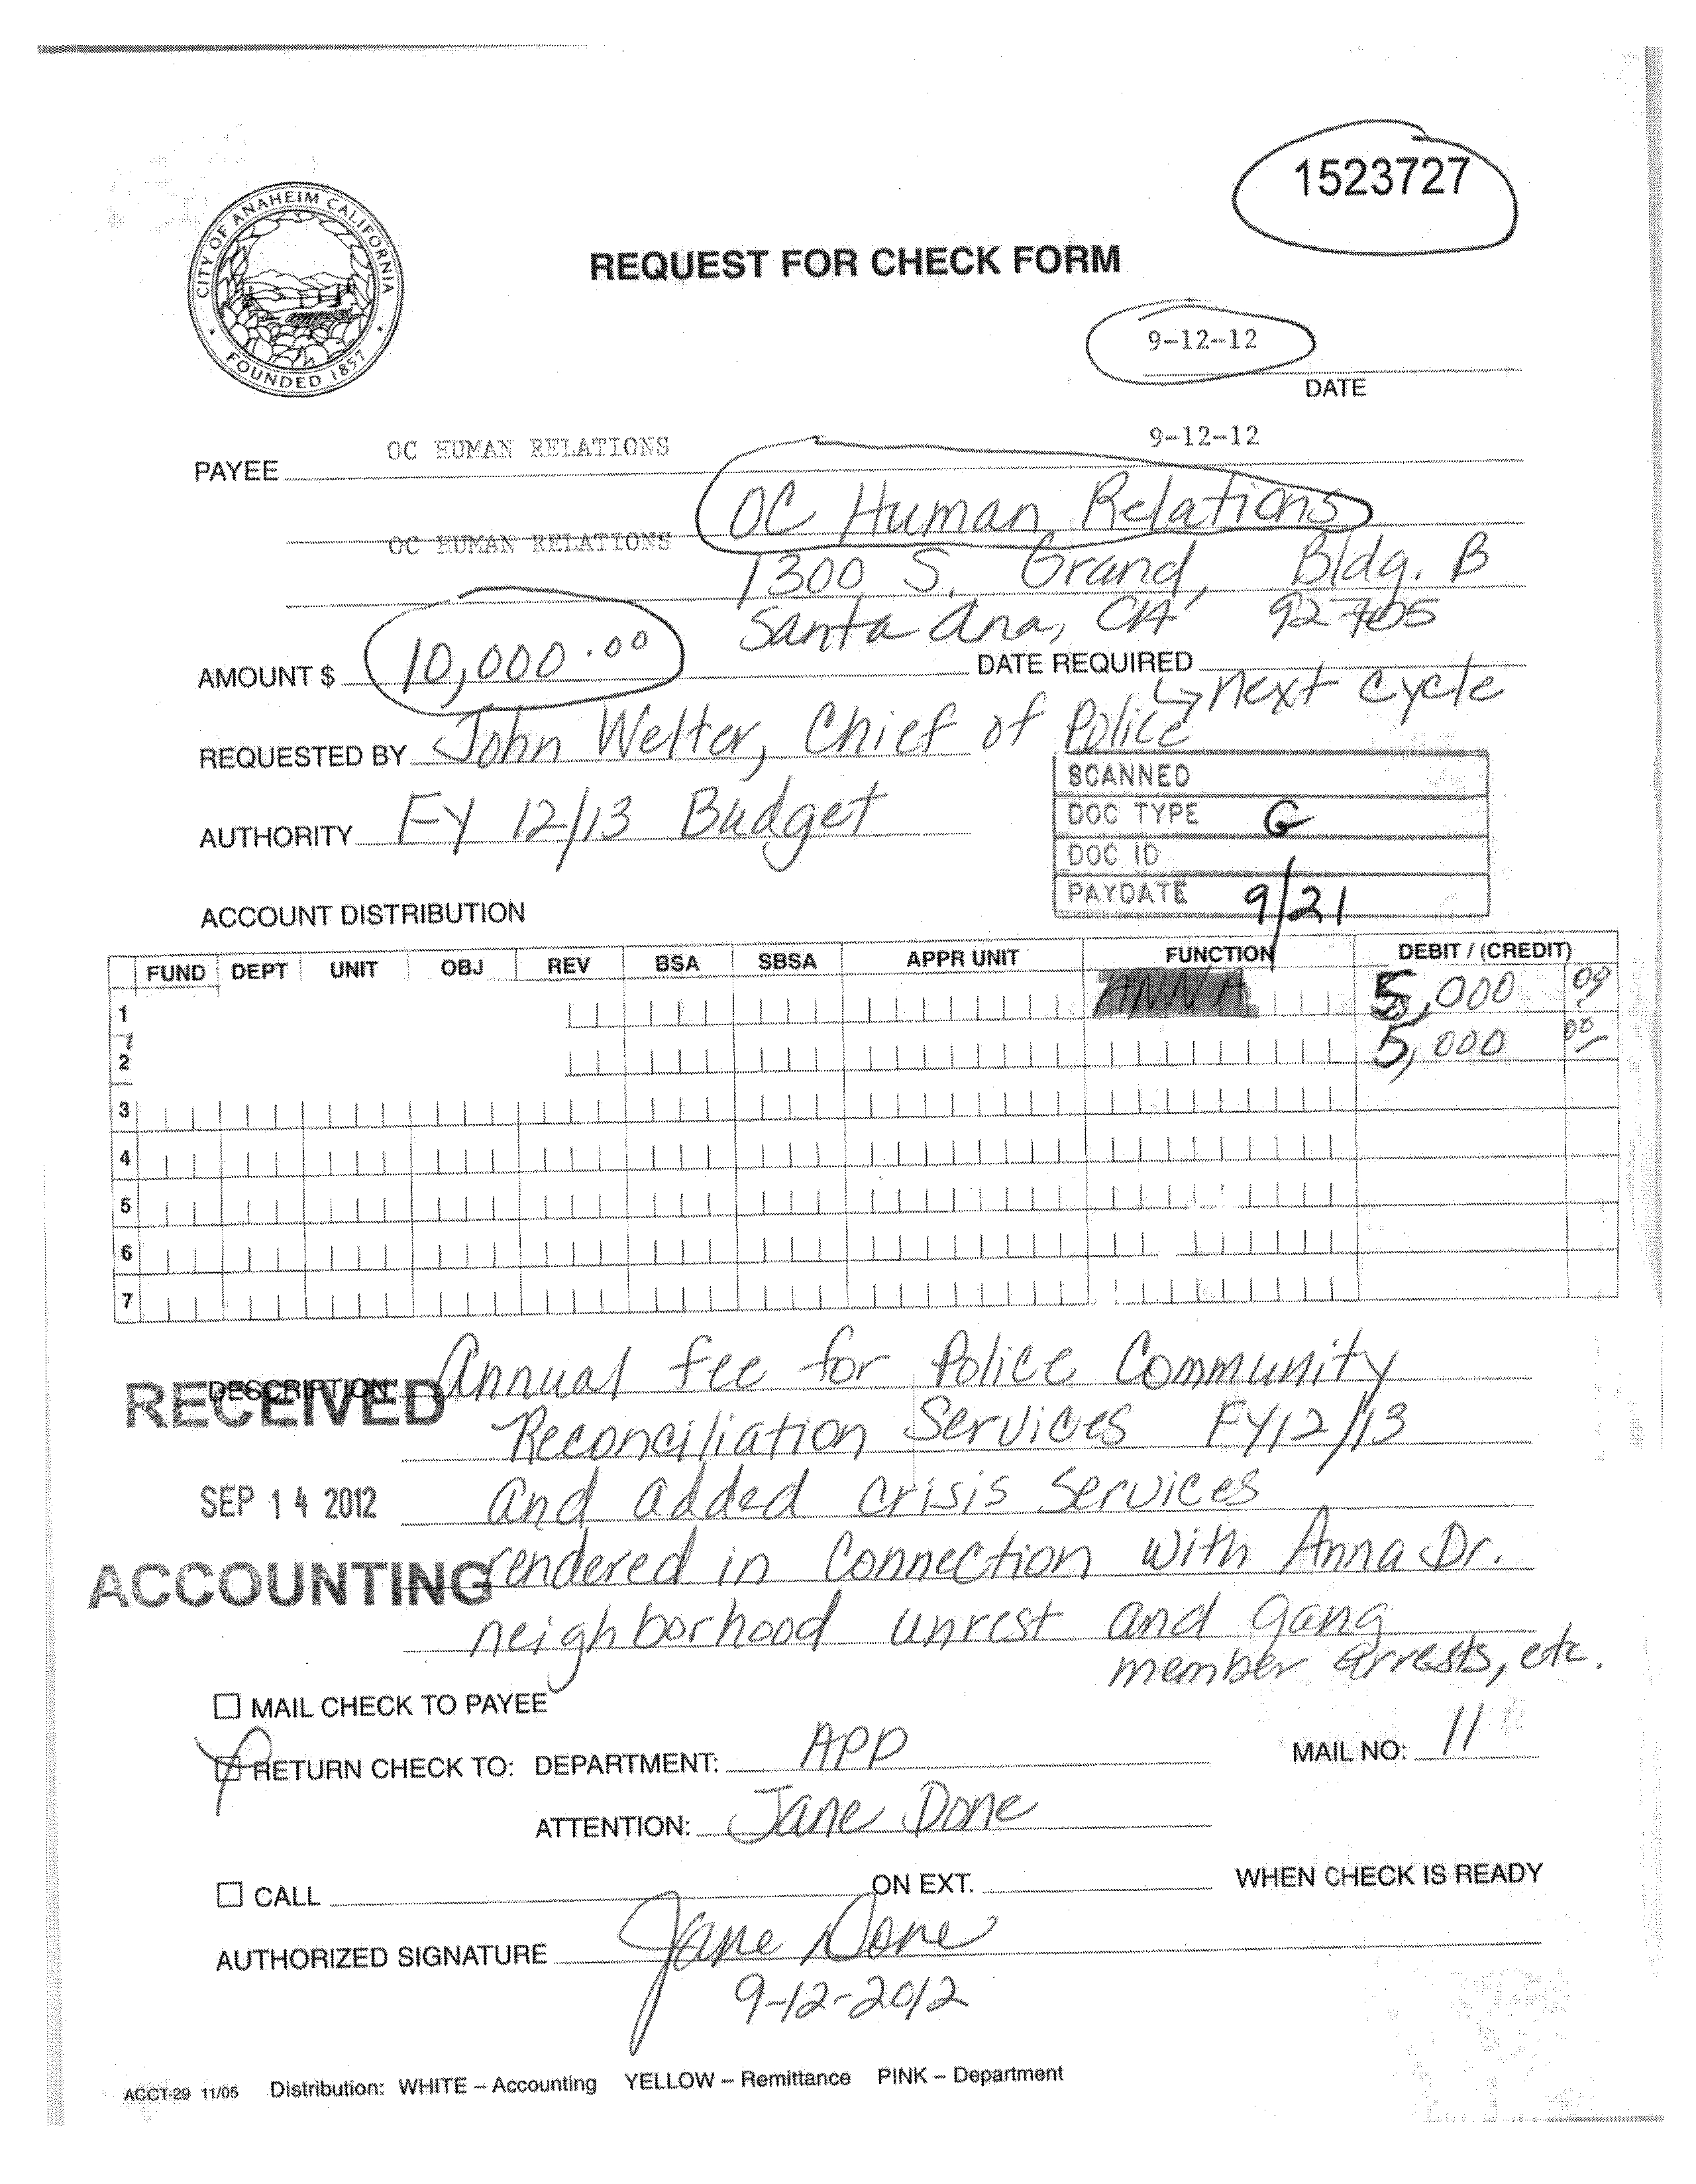 1523727
CITY OF ANAHEIM CALIFORNIA
FOUNDED 1857
REQUEST FOR CHECK FORM
9-12-12
DATE
OC HUMAN RELATIONS 9-12-12
PAYEE
OC Human Relations
OC HUMAN RELATIONS
1300 S. Grand, Bldg. B
Santa Ana, CA 92705
AMOUNT $ 10,000.00 DATE REQUIRED
next cycle
REQUESTED BY John Welter, Chief of Police
SCANNED
DOC TYPE G
AUTHORITY FY 12/13 Budget
DOC ID
PAYDATE 9/21
ACCOUNT DISTRIBUTION
FUND DEPT UNIT OBJ REV BSA SBSA APPR UNIT FUNCTION DEBIT / (CREDIT)
1 ANNA 5,000 00
2 5,000 00
3
4
5
6
7
DESCRIPTION Annual fee for Police Community
RECEIVED
Reconciliation Services FY12/13
SEP 14 2012 and added crisis services
ACCOUNTING rendered in connection with Anna Dr.
neighborhood unrest and gang
member arrests, etc.
MAIL CHECK TO PAYEE
RETURN CHECK TO: DEPARTMENT: APD MAIL NO: 11
ATTENTION: Jane Done
CALL ON EXT. WHEN CHECK IS READY
AUTHORIZED SIGNATURE Jane Done
9-12-2012
ACCT-29 11/05 Distribution: WHITE – Accounting YELLOW – Remittance PINK – Department